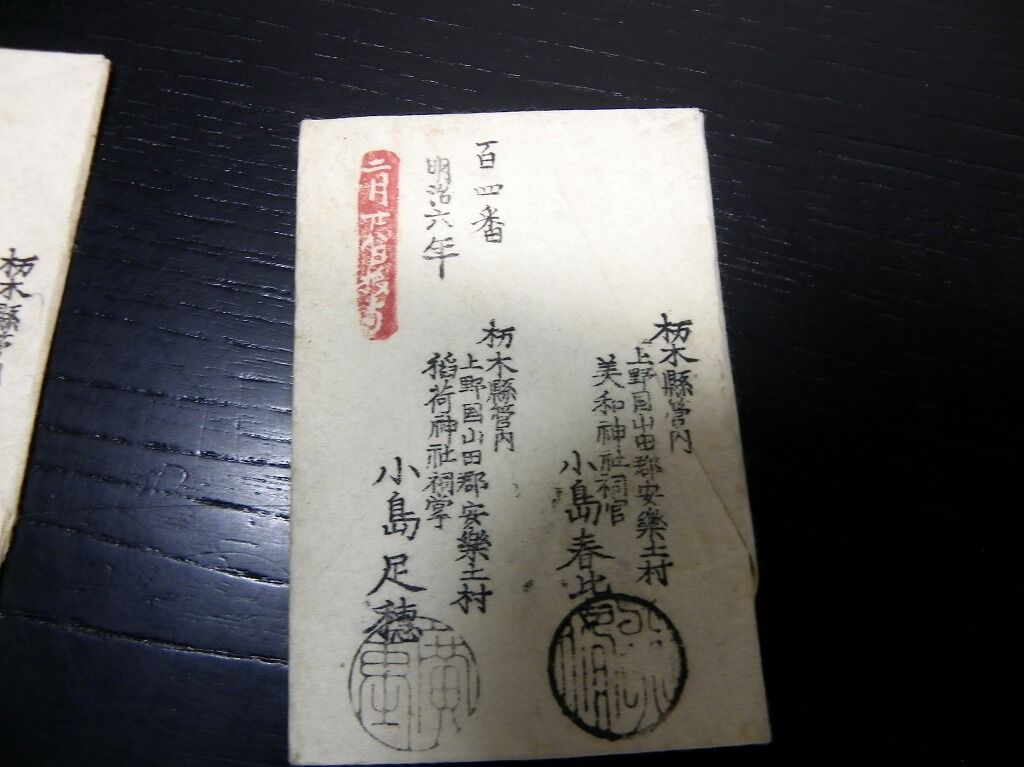 栃木縣管内
上野国山田郡安樂土村
美和神社祠官
小島春
百四番
明治六年
栃木縣管内
上野国山田郡安樂土村
稲荷神社祠掌
小島足穂
二月
栃木縣管内